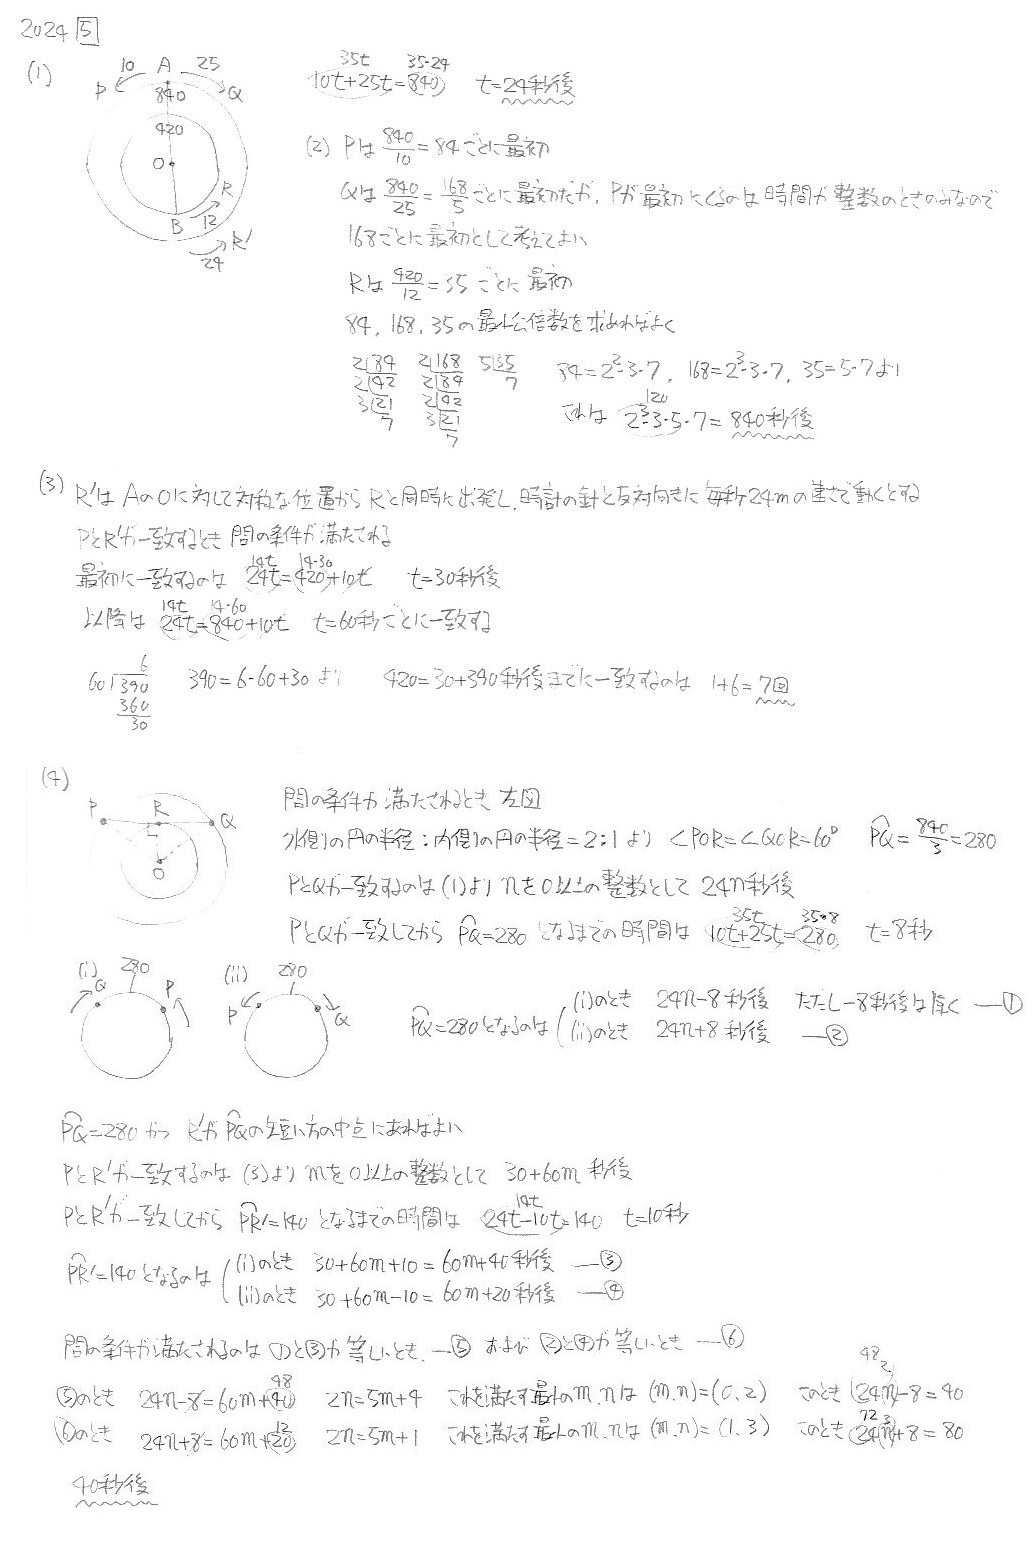 2024 5
(1)
10 A 25
P Q
840
420
O
R
B 12
R'
24
35t 35·24
10t+25t=840 t=24秒後
(2) Pは 840/10 = 84ごとに最初
Qは 840/25 = 168/5 ごとに最初だが, Pが最初にくるのは時間が整数のときのみなので
168ごとに最初として考えてよい
Rは 420/12 = 35 ごとに最初
84, 168, 35の最小公倍数を求めればよく
2)84 2)168 5)35
2)42 2)84 7
3)21 2)42
7 3)21
7
84=2²·3·7, 168=2³·3·7, 35=5·7より
120
これは 2³·3·5·7=840秒後
(3) R'はAのOに対して対称な位置からRと同時に出発し,時計の針と反対向きに毎秒24mの速さで動くとする
PとR'が一致するとき問の条件が満たされる
14t 14·30
最初に一致するのは 24t=420+10t t=30秒後
14t 14·60
以降は 24t=840+10t t=60秒ごとに一致する
6
60)390
360
30
390=6·60+30より 420=30+390秒後までに一致するのは 1+6=7回
(4)
P R Q
O
問の条件が満たされるとき左図
外側の円の半径:内側の円の半径=2:1より ∠POR=∠QOR=60° PQ=840/3=280
PとQが一致するのは(1)よりnを0以上の整数として24n秒後
35t 35·8
PとQが一致してからPQ=280となるまでの時間は 10t+25t=280 t=8秒
(i) 280
Q P
(ii) 280
P Q
PQ=280となるのは
(i)のとき 24n-8秒後 ただし-8秒後は除く ―①
(ii)のとき 24n+8秒後 ―②
PQ=280かつR'がPQの短い方の中点にあればよい
PとR'が一致するのは(3)よりmを0以上の整数として 30+60m秒後
14t
PとR'が一致してからPR'=140となるまでの時間は 24t-10t=140 t=10秒
PR'=140となるのは
(i)のとき 30+60m+10=60m+40秒後 ―③
(ii)のとき 30+60m-10=60m+20秒後 ―④
問の条件が満たされるのは①と③が等しいとき ―⑤ および ②と④が等しいとき ―⑥
48 48 2
⑤のとき 24n-8=60m+40 2n=5m+4 これを満たす最小のm,nは (m,n)=(0,2) このとき 24n-8=40
12 72 3
⑥のとき 24n+8=60m+20 2n=5m+1 これを満たす最小のm,nは (m,n)=(1,3) このとき 24n+8=80
40秒後